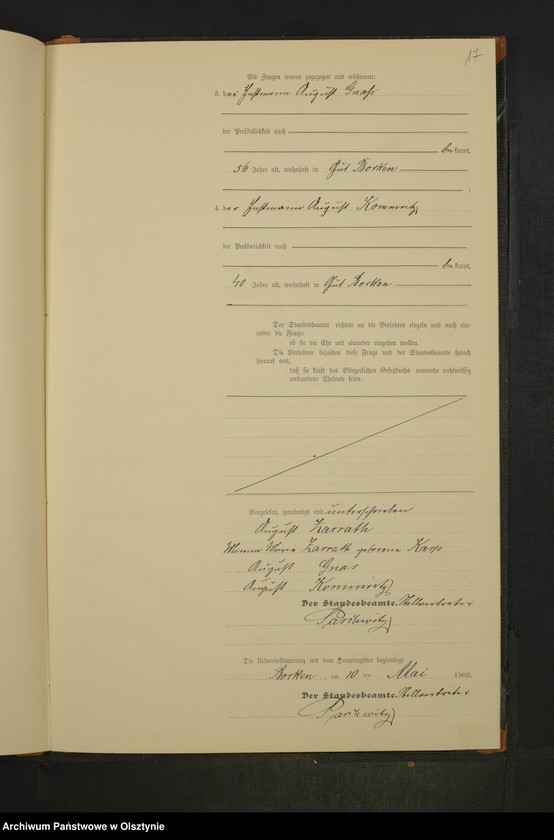 17
Als Zeugen waren zugezogen und erschienen:
3. der Instmann August Gnass
der Persönlichkeit nach
bekannt,
56 Jahre alt, wohnhaft in Gut Borken
4. der Instmann August Kommritz
der Persönlichkeit nach
bekannt,
40 Jahre alt, wohnhaft in Gut Borken
Der Standesbeamte richtete an die Verlobten einzeln und nach ein-
ander die Frage:
ob sie die Ehe mit einander eingehen wollen.
Die Verlobten bejahten diese Frage und der Standesbeamte sprach
hierauf aus,
daß sie kraft des Bürgerlichen Gesetzbuchs nunmehr rechtmäßig
verbundene Eheleute seien.
Vorgelesen, genehmigt und unterschrieben
August Zarrath
Minna Marie Zarrath geborene Karp
August Gnas
August Kommritz
Der Standesbeamte. Stellvertreter
Die Uebereinstimmung mit dem Hauptregister beglaubigt
Borken, am 10 ten Mai 1903.
Der Standesbeamte. Stellvertreter
Archiwum Państwowe w Olsztynie